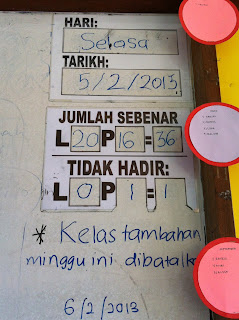 HARI:
Selasa
TARIKH:
5/2/2013
JUMLAH SEBENAR
L 20 P 16 = 36
TIDAK HADIR:
L 0 P 1 = 1
* Kelas tambahan
minggu ini dibatalka
6/2/2013